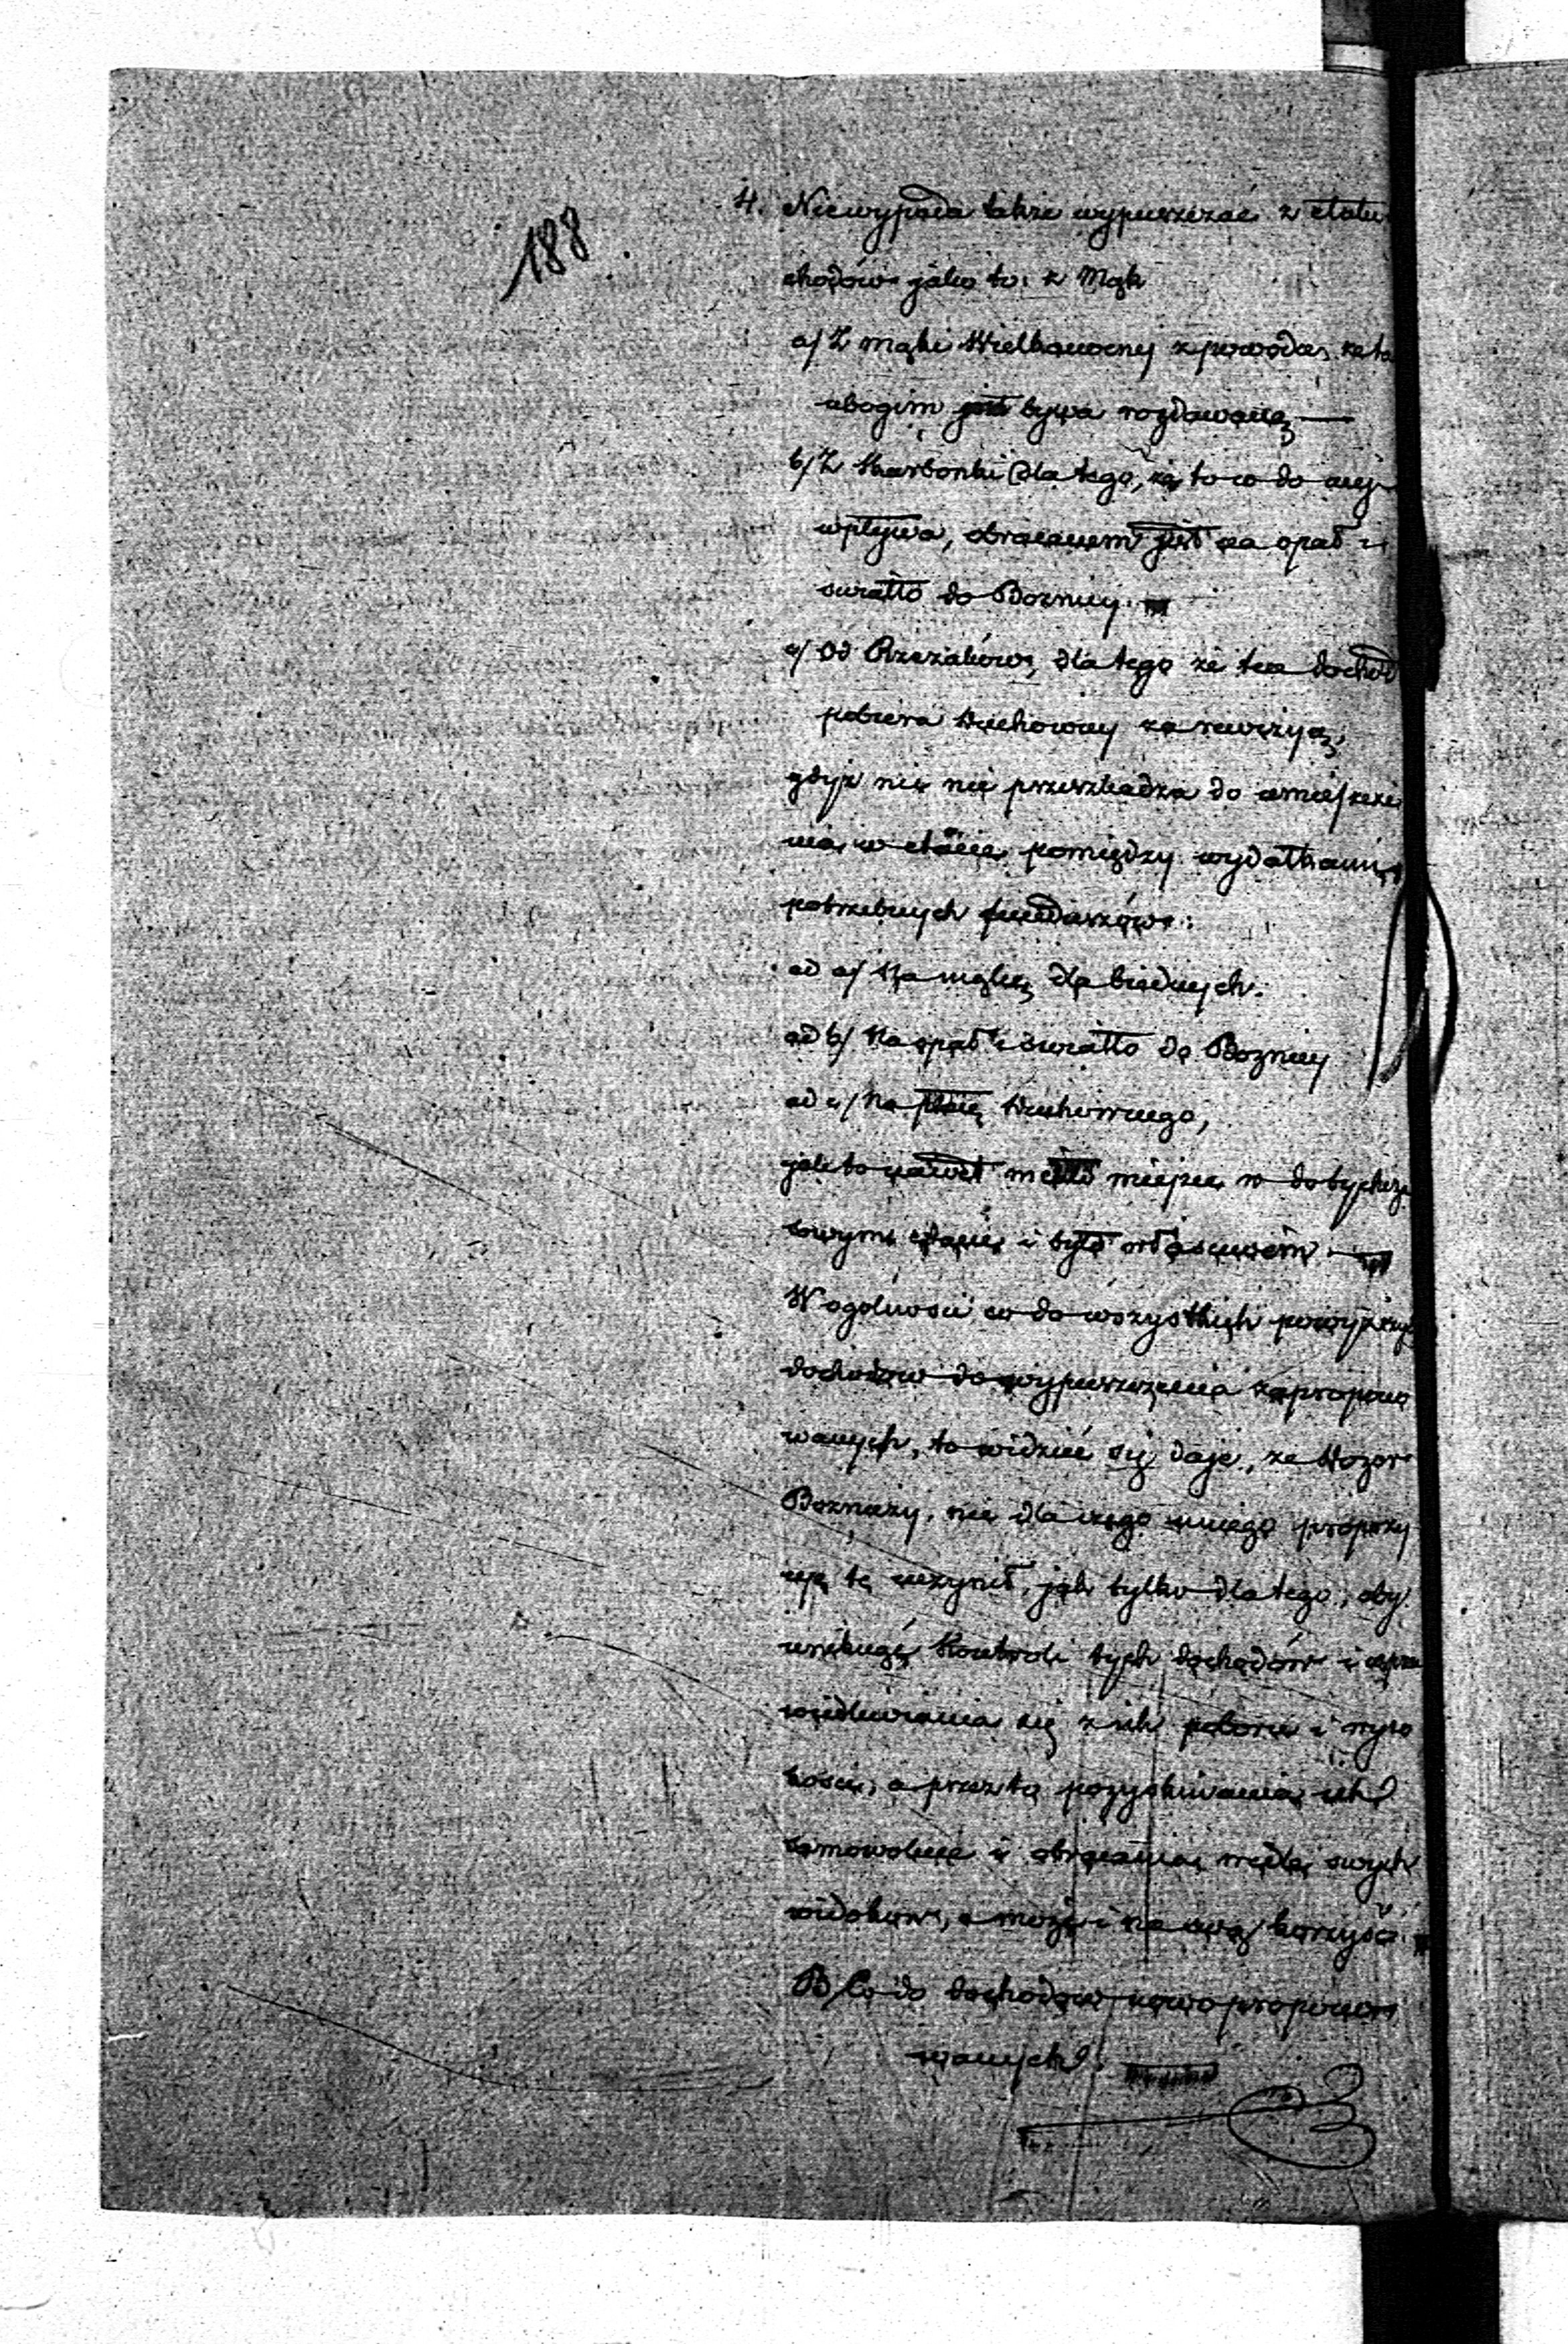 188
4. Niewypada także wypuszczać z etatu
chodów jako to: z Mąk
a/ Z mąki Wielkanocnej z powodu, że ta
ubogim jest bywa rozdawaną —
b/ Z Skarbonki dla tego, że to co do niej
wpływa, obracanem jest na opał i
światło do Bożnicy.
c/ Od Rzezaków, dla tego że ten dochód
pobiera Duchowny za rewizyą,
gdyż nic nie przeszkadza do umieszcze
nia w etacie pomiędzy wydatkami
potrzebnych funduszów:
ad a/ Na mąkę dla biednych.
ad b/ Na opał i światło do Bożnicy
ad c/ Na płacę Duchownego,
jak to nawet miało miejsce w dotychcza
sowym etacie i było właściwem. —
W ogólności co do wszystkich powyższych
dochodów do wypuszczenia zapropono
wanych, to widzieć się daje, że Dozor
Bożniczy, nie dla czego innego propozy
cyą tę uczynił, jak tylko dla tego, aby
uniknąć Kontroli tych dochodów i uspra
wiedliwiania się z ich poboru i wyso
kości, a przez to pozyskiwania ich
samowolnie i obracania wedle swych
widoków, a może i na swą korzyść.
B/ Co do dochodów nowo propono
wanych.